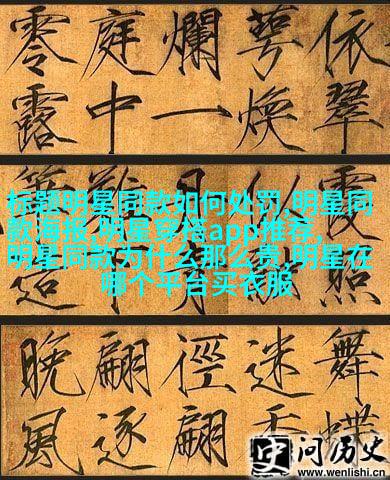 依翠
萼煥
爛一
庭中
零露
标题明星同款如何处罚,明星同
款海报,明星穿搭app推荐,
明星同款为什么那么贵,明星在
哪个平台买衣服
舞蝶
迷香
徑翩
翩逐
晚風
问历史
www.wenlishi.cn